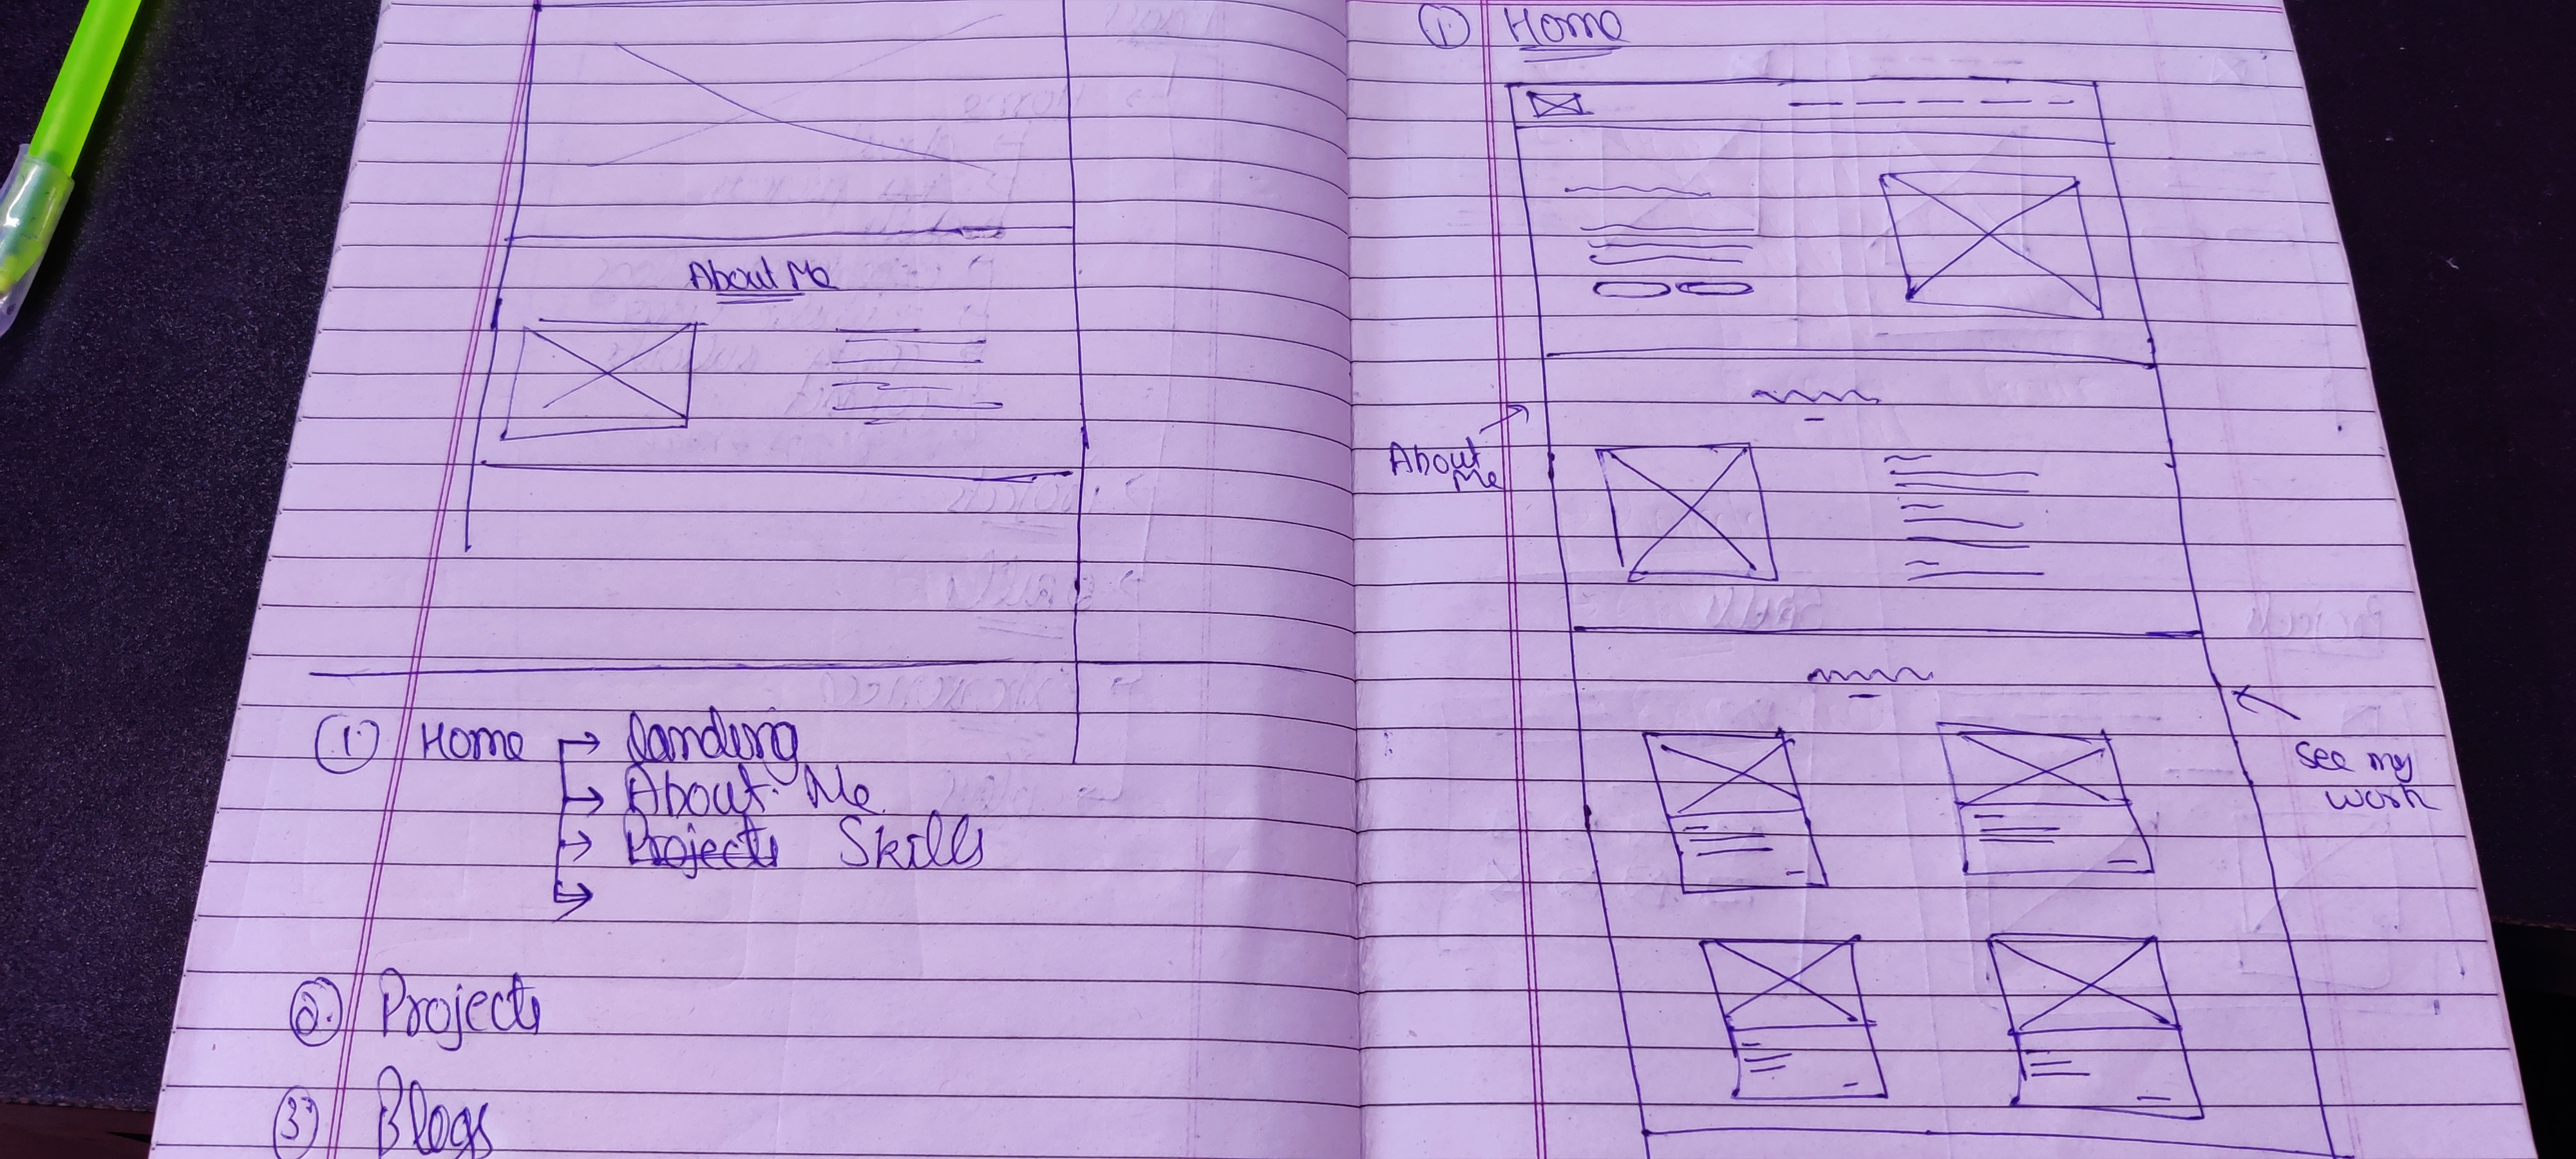 About Me
① Home → Landing
→ About Me
→ Projects Skills
②. Projects
③ Blogs
① Home
About
Me
See my
work